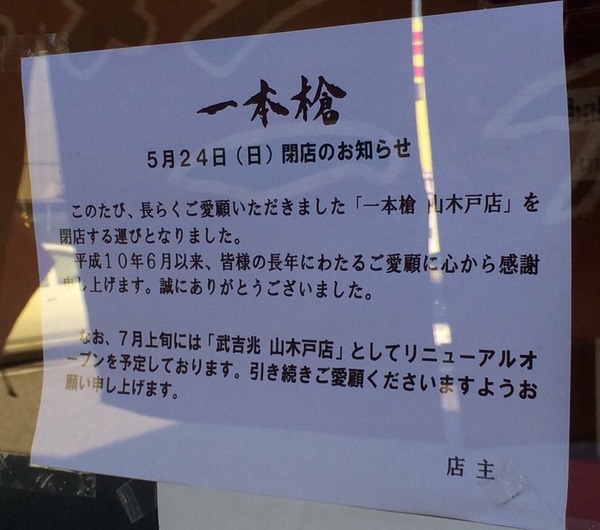 一本槍
5月24日(日)閉店のお知らせ
このたび、長らくご愛顧いただきました「一本槍 山木戸店」を
閉店する運びとなりました。
平成10年6月以来、皆様の長年にわたるご愛顧に心から感謝
申し上げます。誠にありがとうございました。
なお、7月上旬には「武吉兆 山木戸店」としてリニューアルオ
ープンを予定しております。引き続きご愛顧くださいますようお
願い申し上げます。
店 主